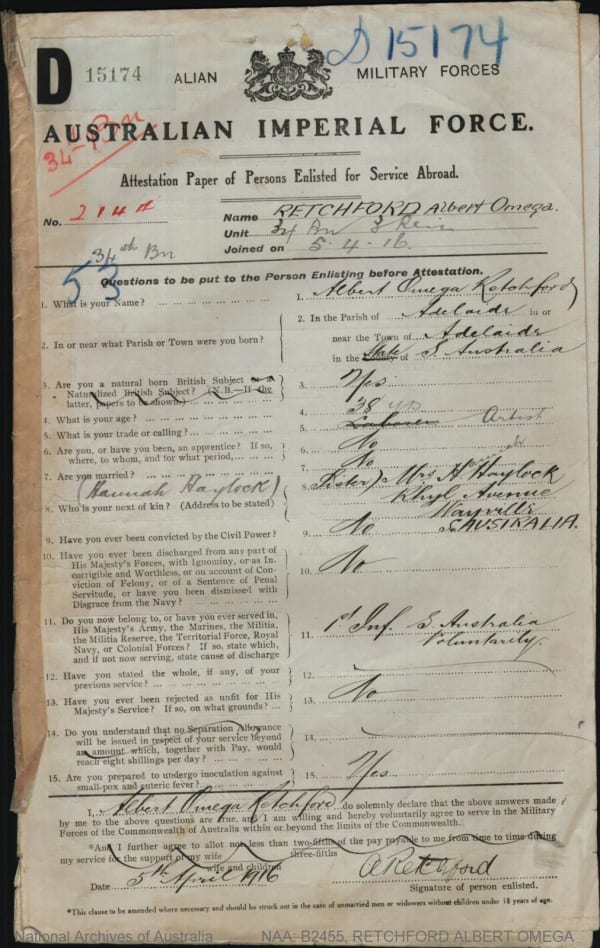 D 15174 ALIAN MILITARY FORCES
D 15174
34 Bn
AUSTRALIAN IMPERIAL FORCE.
Attestation Paper of Persons Enlisted for Service Abroad.
No. 2144 Name RETCHFORD Albert Omega.
Unit 34 Bn 3 Rein
34th Bn Joined on 5.4.16.
53
Questions to be put to the Person Enlisting before Attestation.
1. What is your Name? 1. Albert Omega Retchford
2. In or near what Parish or Town were you born? 2. In the Parish of Adelaide in or
near the Town of Adelaide
in the State of S. Australia
3. Are you a natural born British Subject or a
Naturalized British Subject? (N.B.—If the
latter, papers to be shown.) 3. Yes
4. What is your age? 4. 38 yrs
5. What is your trade or calling? 5. Labourer Artist
6. Are you, or have you been, an apprentice? If so,
where, to whom, and for what period, 6. No
7. Are you married? 7. No
(Hannah Haylock)
8. Who is your next of kin? (Address to be stated) 8. (Sister) Mrs H Haylock
Rhyl Avenue
Wayville
S. AUSTRALIA.
9. Have you ever been convicted by the Civil Power? 9. No
10. Have you ever been discharged from any part of
His Majesty's Forces, with Ignominy, or as In-
corrigible and Worthless, or on account of Con-
viction of Felony, or of a Sentence of Penal
Servitude, or have you been dismissed with
Disgrace from the Navy? 10. No
11. Do you now belong to, or have you ever served in,
His Majesty's Army, the Marines, the Militia,
the Militia Reserve, the Territorial Force, Royal
Navy, or Colonial Forces? If so, state which,
and if not now serving, state cause of discharge 11. 1st Inf. S. Australia
Voluntarily.
12. Have you stated the whole, if any, of your
previous service? 12.
13. Have you ever been rejected as unfit for His
Majesty's Service? If so, on what grounds? 13. No
14. Do you understand that no Separation Allowance
will be issued in respect of your service beyond
an amount which, together with Pay, would
reach eight shillings per day? 14.
15. Are you prepared to undergo inoculation against
small-pox and enteric fever? 15. Yes
I, Albert Omega Retchford do solemnly declare that the above answers made
by me to the above questions are true, and I am willing and hereby voluntarily agree to serve in the Military
Forces of the Commonwealth of Australia within or beyond the limits of the Commonwealth.
*And I further agree to allot not less than two-fifths of the pay payable to me from time to time during
three-fifths
my service for the support of my wife
wife and children
Date 5th April 1916 A Retchford
Signature of person enlisted.
*This clause to be amended where necessary and should be struck out in the case of unmarried men or widowers without children under 18 years of age.
National Archives of Australia NAA: B2455, RETCHFORD ALBERT OMEGA